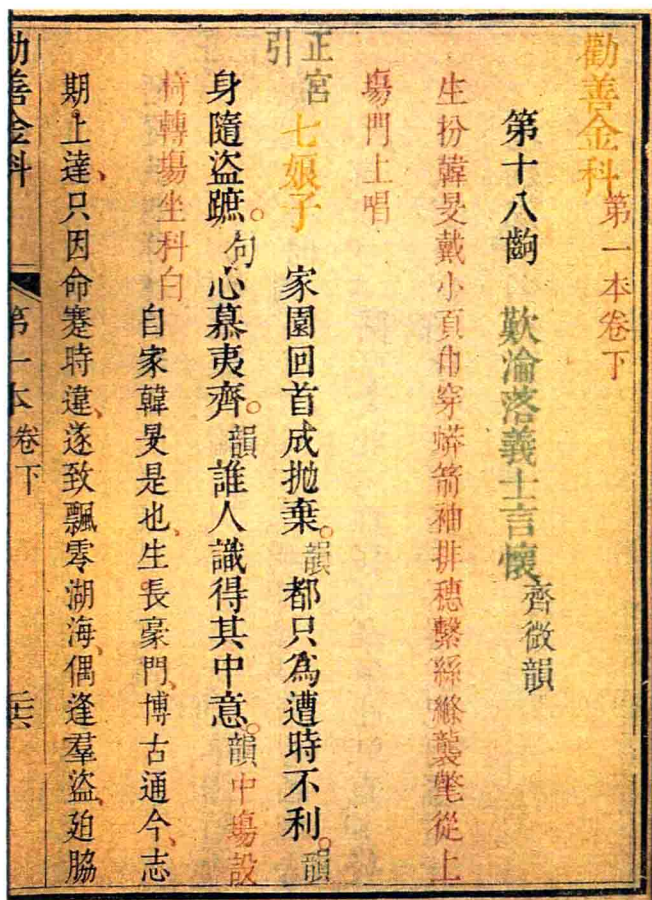 勸善金科 第一本卷下
第十八齣 歎淪落義士言懷 齊微韻
生扮韓旻戴小頁巾穿蟒箭袖排穗繫絲縧襲氅從上
場門上唱
正宮引 七娘子 家園回首成拋棄。韻都只為遭時不利。韻
身隨盜蹠。句心慕夷齊。韻誰人識得其中意。韻中場設
椅轉場坐科白
自家韓旻是也、生長豪門、博古通今、志
期上達、只因命蹇時違、遂致飄零湖海、偶逢羣盜、廹脇
勸善金科 第一本卷下